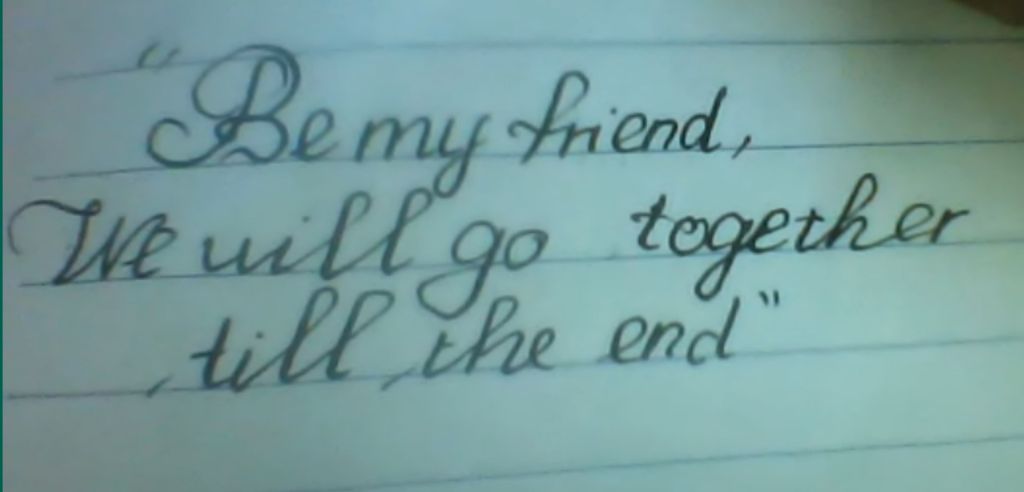 "Be my friend,
We will go together
till the end"